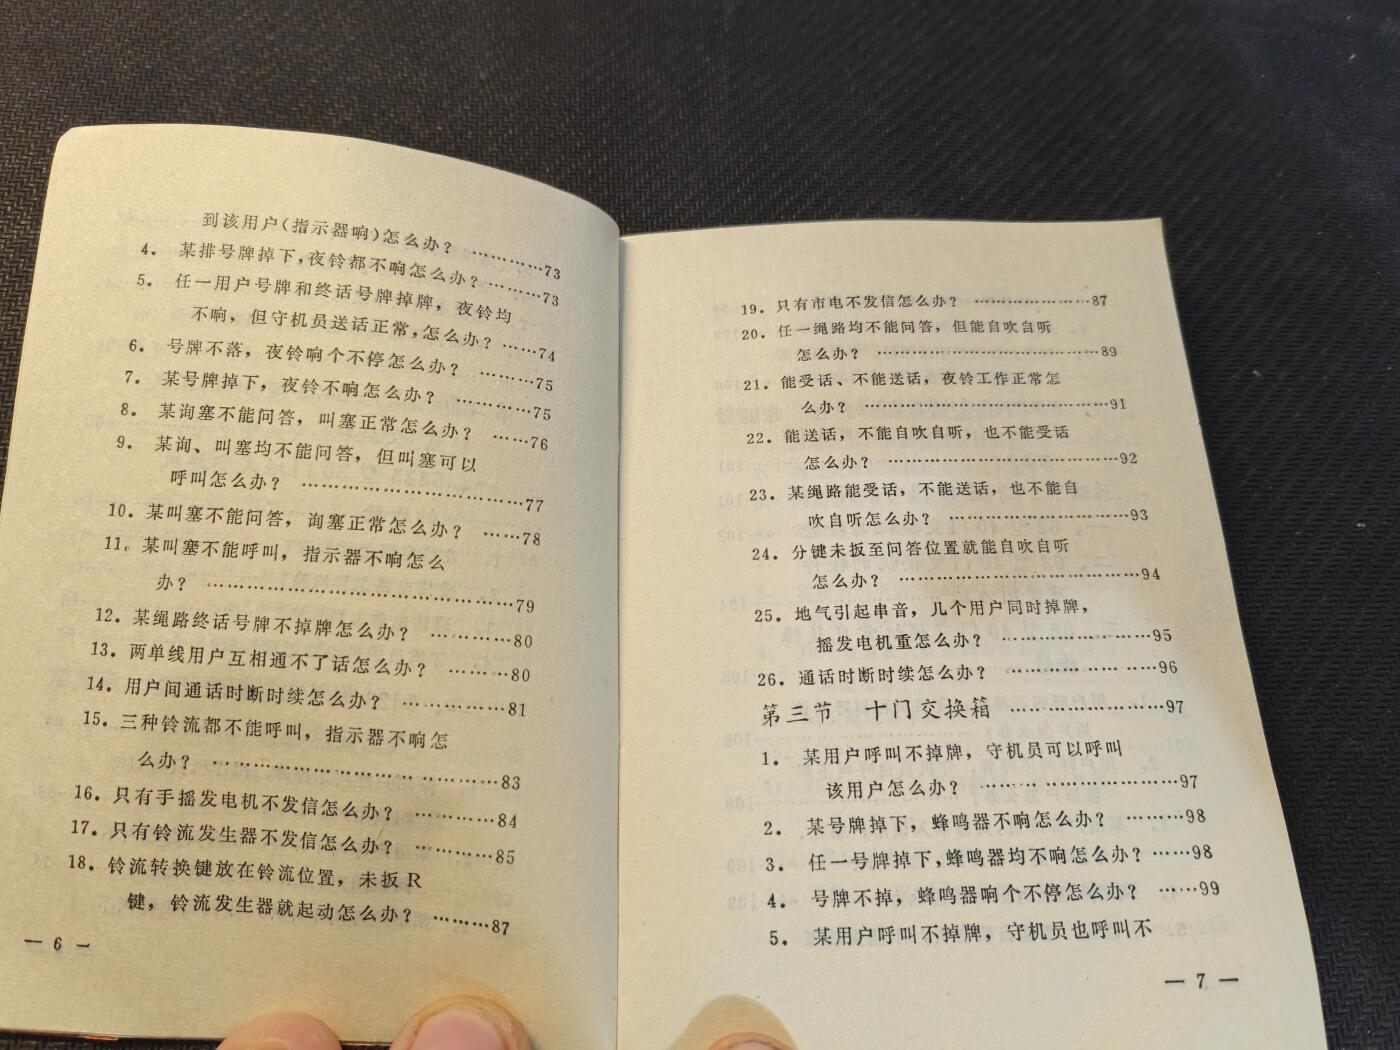 到该用户(指示器响)怎么办? …………73
4. 某排号牌掉下,夜铃都不响怎么办? ………73
5. 任一用户号牌和终话号牌掉牌,夜铃均
不响,但守机员送话正常,怎么办? ……74
6. 号牌不落,夜铃响个不停怎么办? ………75
7. 某号牌掉下,夜铃不响怎么办? …………75
8. 某询塞不能问答,叫塞正常怎么办? ……76
9. 某询、叫塞均不能问答,但叫塞可以
呼叫怎么办? ………………………………77
10. 某叫塞不能问答,询塞正常怎么办? ……78
11. 某叫塞不能呼叫,指示器不响怎么
办? …………………………………………79
12. 某绳路终话号牌不掉牌怎么办? …………80
13. 两单线用户互相通不了话怎么办? ………80
14. 用户间通话时断时续怎么办? ……………81
15. 三种铃流都不能呼叫,指示器不响怎
么办? ………………………………………83
16. 只有手摇发电机不发信怎么办? …………84
17. 只有铃流发生器不发信怎么办? …………85
18. 铃流转换键放在铃流位置,未扳R
键,铃流发生器就起动怎么办? ………87
— 6 —
19. 只有市电不发信怎么办? …………………87
20. 任一绳路均不能问答,但能自吹自听
怎么办? ……………………………………89
21. 能受话、不能送话,夜铃工作正常怎
么办? ………………………………………91
22. 能送话,不能自吹自听,也不能受话
怎么办? ……………………………………92
23. 某绳路能受话,不能送话,也不能自
吹自听怎么办? ……………………………93
24. 分键未扳至问答位置就能自吹自听
怎么办? ……………………………………94
25. 地气引起串音,几个用户同时掉牌,
摇发电机重怎么办? ………………………95
26. 通话时断时续怎么办? ……………………96
第三节 十门交换箱 ………………………97
1. 某用户呼叫不掉牌,守机员可以呼叫
该用户怎么办? ……………………………97
2. 某号牌掉下,蜂鸣器不响怎么办? ………98
3. 任一号牌掉下,蜂鸣器均不响怎么办? ……98
4. 号牌不掉,蜂鸣器响个不停怎么办? ……99
5. 某用户呼叫不掉牌,守机员也呼叫不
— 7 —